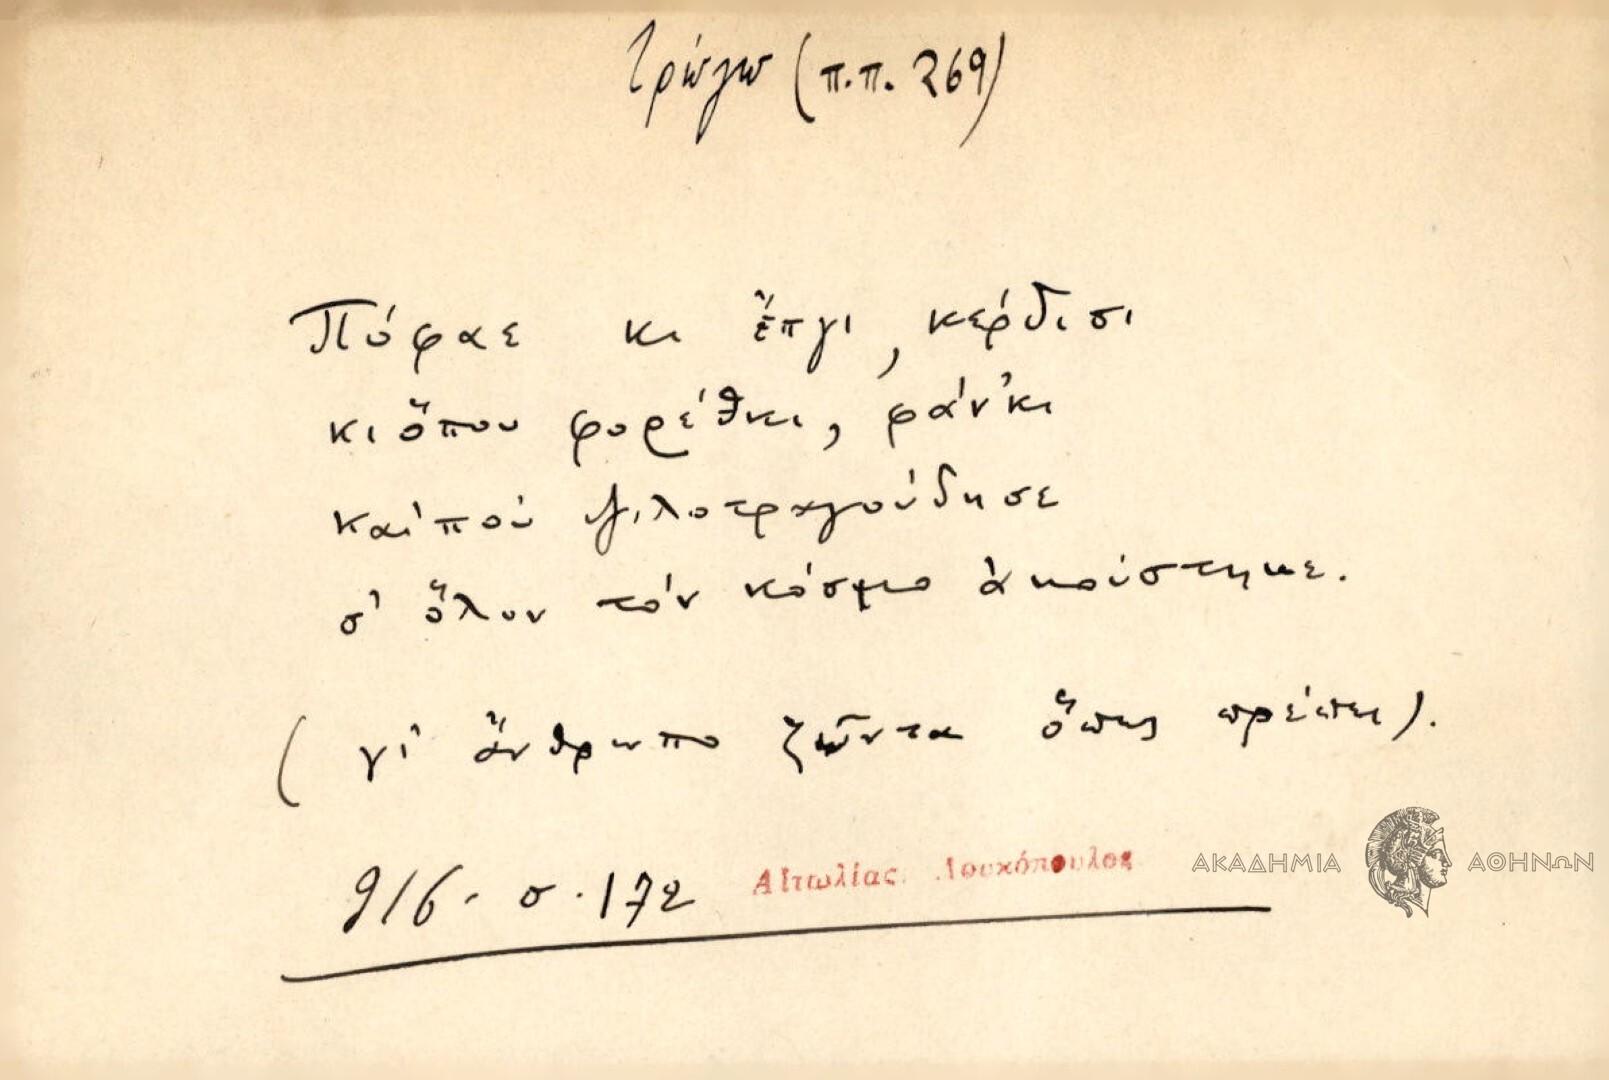 Τρώγω (π.π. 269)
Πόφαε κι ἔπγι, κέρδισι
κι ὅπου φορέθκι, φάν'κι
καί ποὺ ψιλοτραγούδησε
σ' ὅλον τόν κόσμο ἀκούστηκε.
(γι' ἄνθρωπο ζῶντα ὅπως πρέπει).
916. σ. 172 Αἰτωλίας Λουκόπουλος
ΑΚΑΔΗΜΙΑ ΑΘΗΝΩΝ